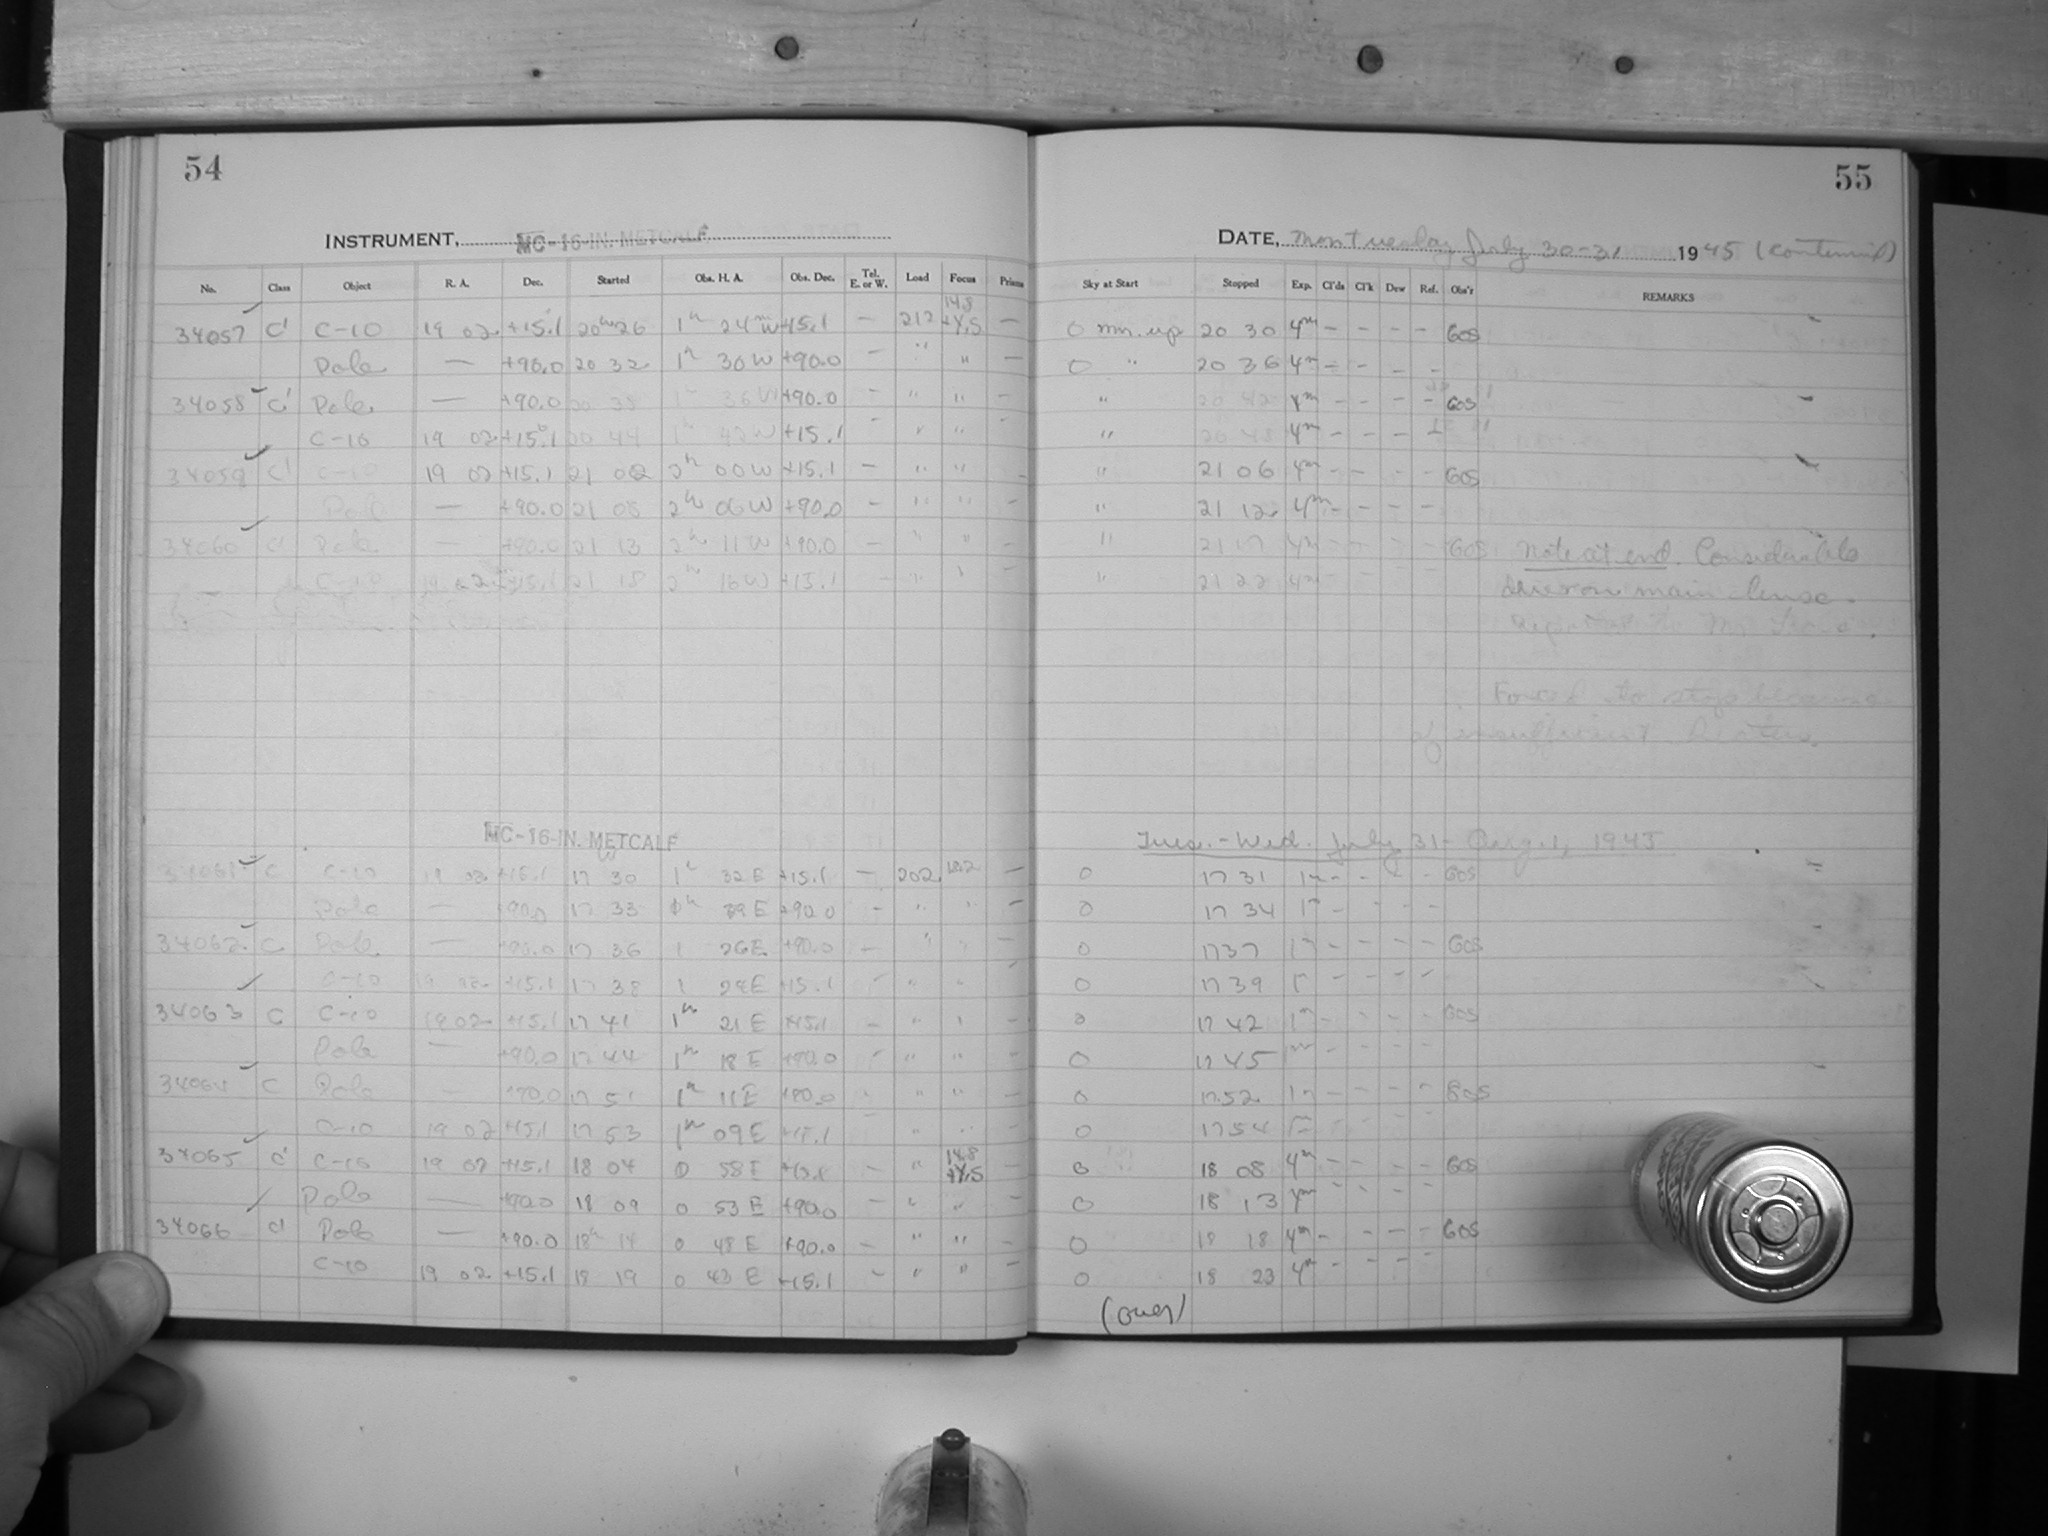 54
55
INSTRUMENT, MC-16-IN. METCALF
DATE, Mon Tuesday July 30-31 1945 (continued)
No. Class Object R. A. Dec. Started Obs. H. A. Obs. Dec. Tel. E. or W. Load Focus Prisms Sky at Start Stopped Exp. Cl'ds Cl'k Dew Ref. Obs'r REMARKS
34057 C' C-10 19 02 +15.1 20h 26 1h 24m W +15.1 — 212 14.8 +4.5 — 0 mn. up 20 30 4m - - - - GOS
Pole — +90.0 20 32 1h 30 W +90.0 — " " — 0 " 20 36 4m - - - -
34058 C' Pole — +90.0 20 38 1h 36 W +90.0 - " " - " 20 42 4m - - - - GOS
C-10 19 02 +15.1 20 44 1h 42 W +15.1 - " " " 20 48 4m - - -
34059 C' C-10 19 02 +15.1 21 02 2h 00 W +15.1 — " " - " 21 06 4m - - - - GOS
Pole — +90.0 21 08 2h 06 W +90.0 — " " - " 21 12 4m - - - -
34060 C' Pole — +90.0 21 13 2h 11 W +90.0 - " " - " 21 17 4m - - - - GOS Note at end. Considerable
C-10 19 02 +15.1 21 18 2h 16 W +15.1 - " " - " 21 22 4m dew on main lense.
Forced to stop because
of insufficient
MC-16-IN. METCALF
Tues.-Wed. July 31-Aug. 1, 1945
34061 C C-10 19 02 +15.1 17 30 1h 32 E +15.1 — 202 — 0 17 31 1m - - - - GOS
Pole — +90.0 17 33 +90.0 - " " - 0 17 34 1m - - - -
34062 C Pole — +90.0 17 36 1 26 E +90.0 - " " - 0 17 37 1m - - - - GOS
C-10 19 02 +15.1 17 38 1 24 E +15.1 - " " 0 17 39 1m - - - -
34063 C C-10 19 02 +15.1 17 41 1h 21 E +15.1 - " " 0 17 42 1m - - - - GOS
Pole — +90.0 17 44 1h 18 E +90.0 - " " 0 17 45 1m - - - -
34064 C Pole — +90.0 17 51 1h 11 E +90.0 - " " 0 17 52 1m - - - - GOS
C-10 19 02 +15.1 17 53 1h 09 E +15.1 " " 0 17 54 1m - - - -
34065 C' C-10 19 02 +15.1 18 04 0 58 E +15.1 - " 14.8 +4.5 - 0 18 08 4m - - - - GOS
Pole — +90.0 18 09 0 53 E +90.0 - " " - 0 18 13 4m - - - -
34066 C' Pole — +90.0 18h 14 0 48 E +90.0 - " " - 0 18 18 4m - - - - GOS
C-10 19 02 +15.1 18 19 0 43 E +15.1 - " " - 0 18 23 4m - - - -
(over)